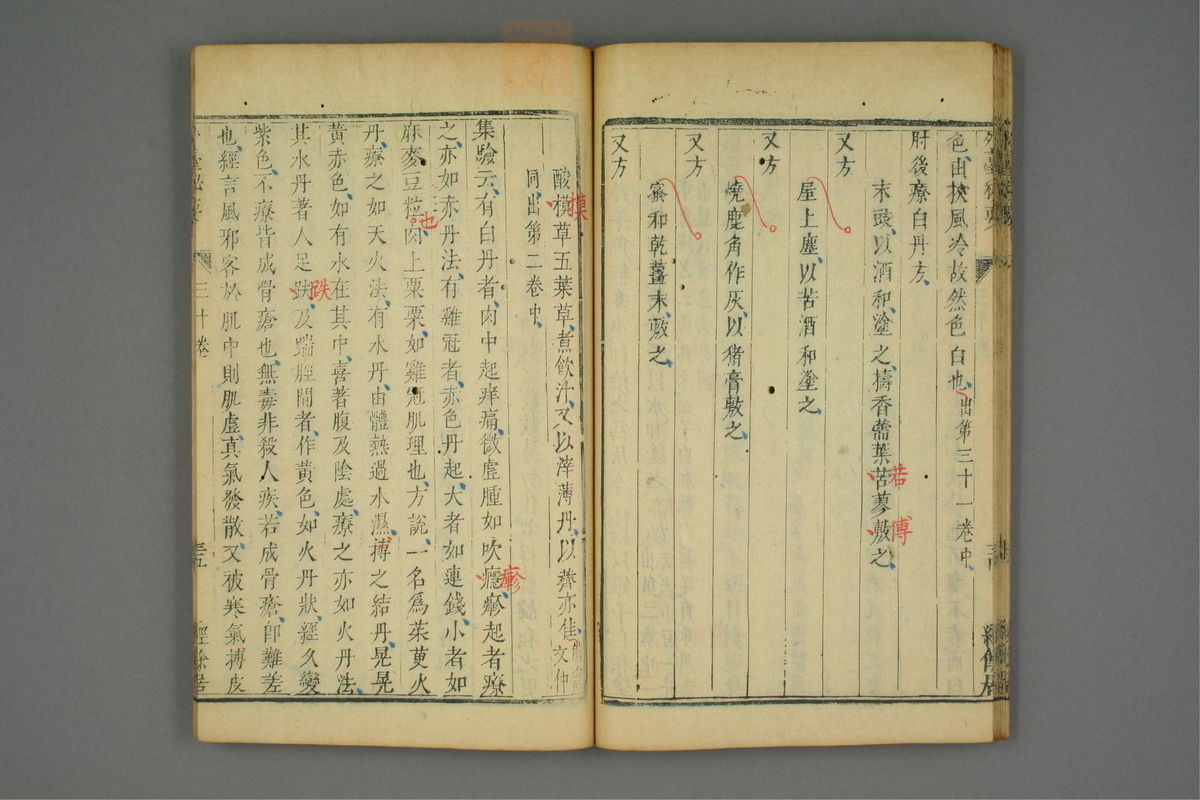 色由挾風冷故然色白也出第三十一卷中
肘後療白丹方
末豉以酒和塗之擣香薷葉苦蓼敷之
若
傅
又方
屋上塵以苦酒和塗之
又方
燒鹿角作灰以猪膏敷之
又方
蜜和乾薑末敷之
又方
酸模草五葉草煮飲汁又以滓薄丹以薺亦佳文仲
模
同出第二卷中
集驗云有白丹者肉中起痒痛微虛腫如吹癮瘮起者療
瘮
之亦如赤丹法有雞冠者赤色丹起大者如連錢小者如
麻麥豆粒肉上粟粟如雞冠肌理也方說一名爲茱萸火
也
丹療之如天火法有水丹由體熱過水濕搏之結丹晃晃
黃赤色如有水在其中喜著腹及陰處療之亦如火丹法
其水丹著人足趺及踹脛間者作黃色如火丹狀經久變
跌
紫色不療皆成骨瘡也無毒非殺人疾若成骨瘡即難差
也經言風邪客於肌中則肌虛真氣發散又被寒氣搏皮
三十卷
經餘居